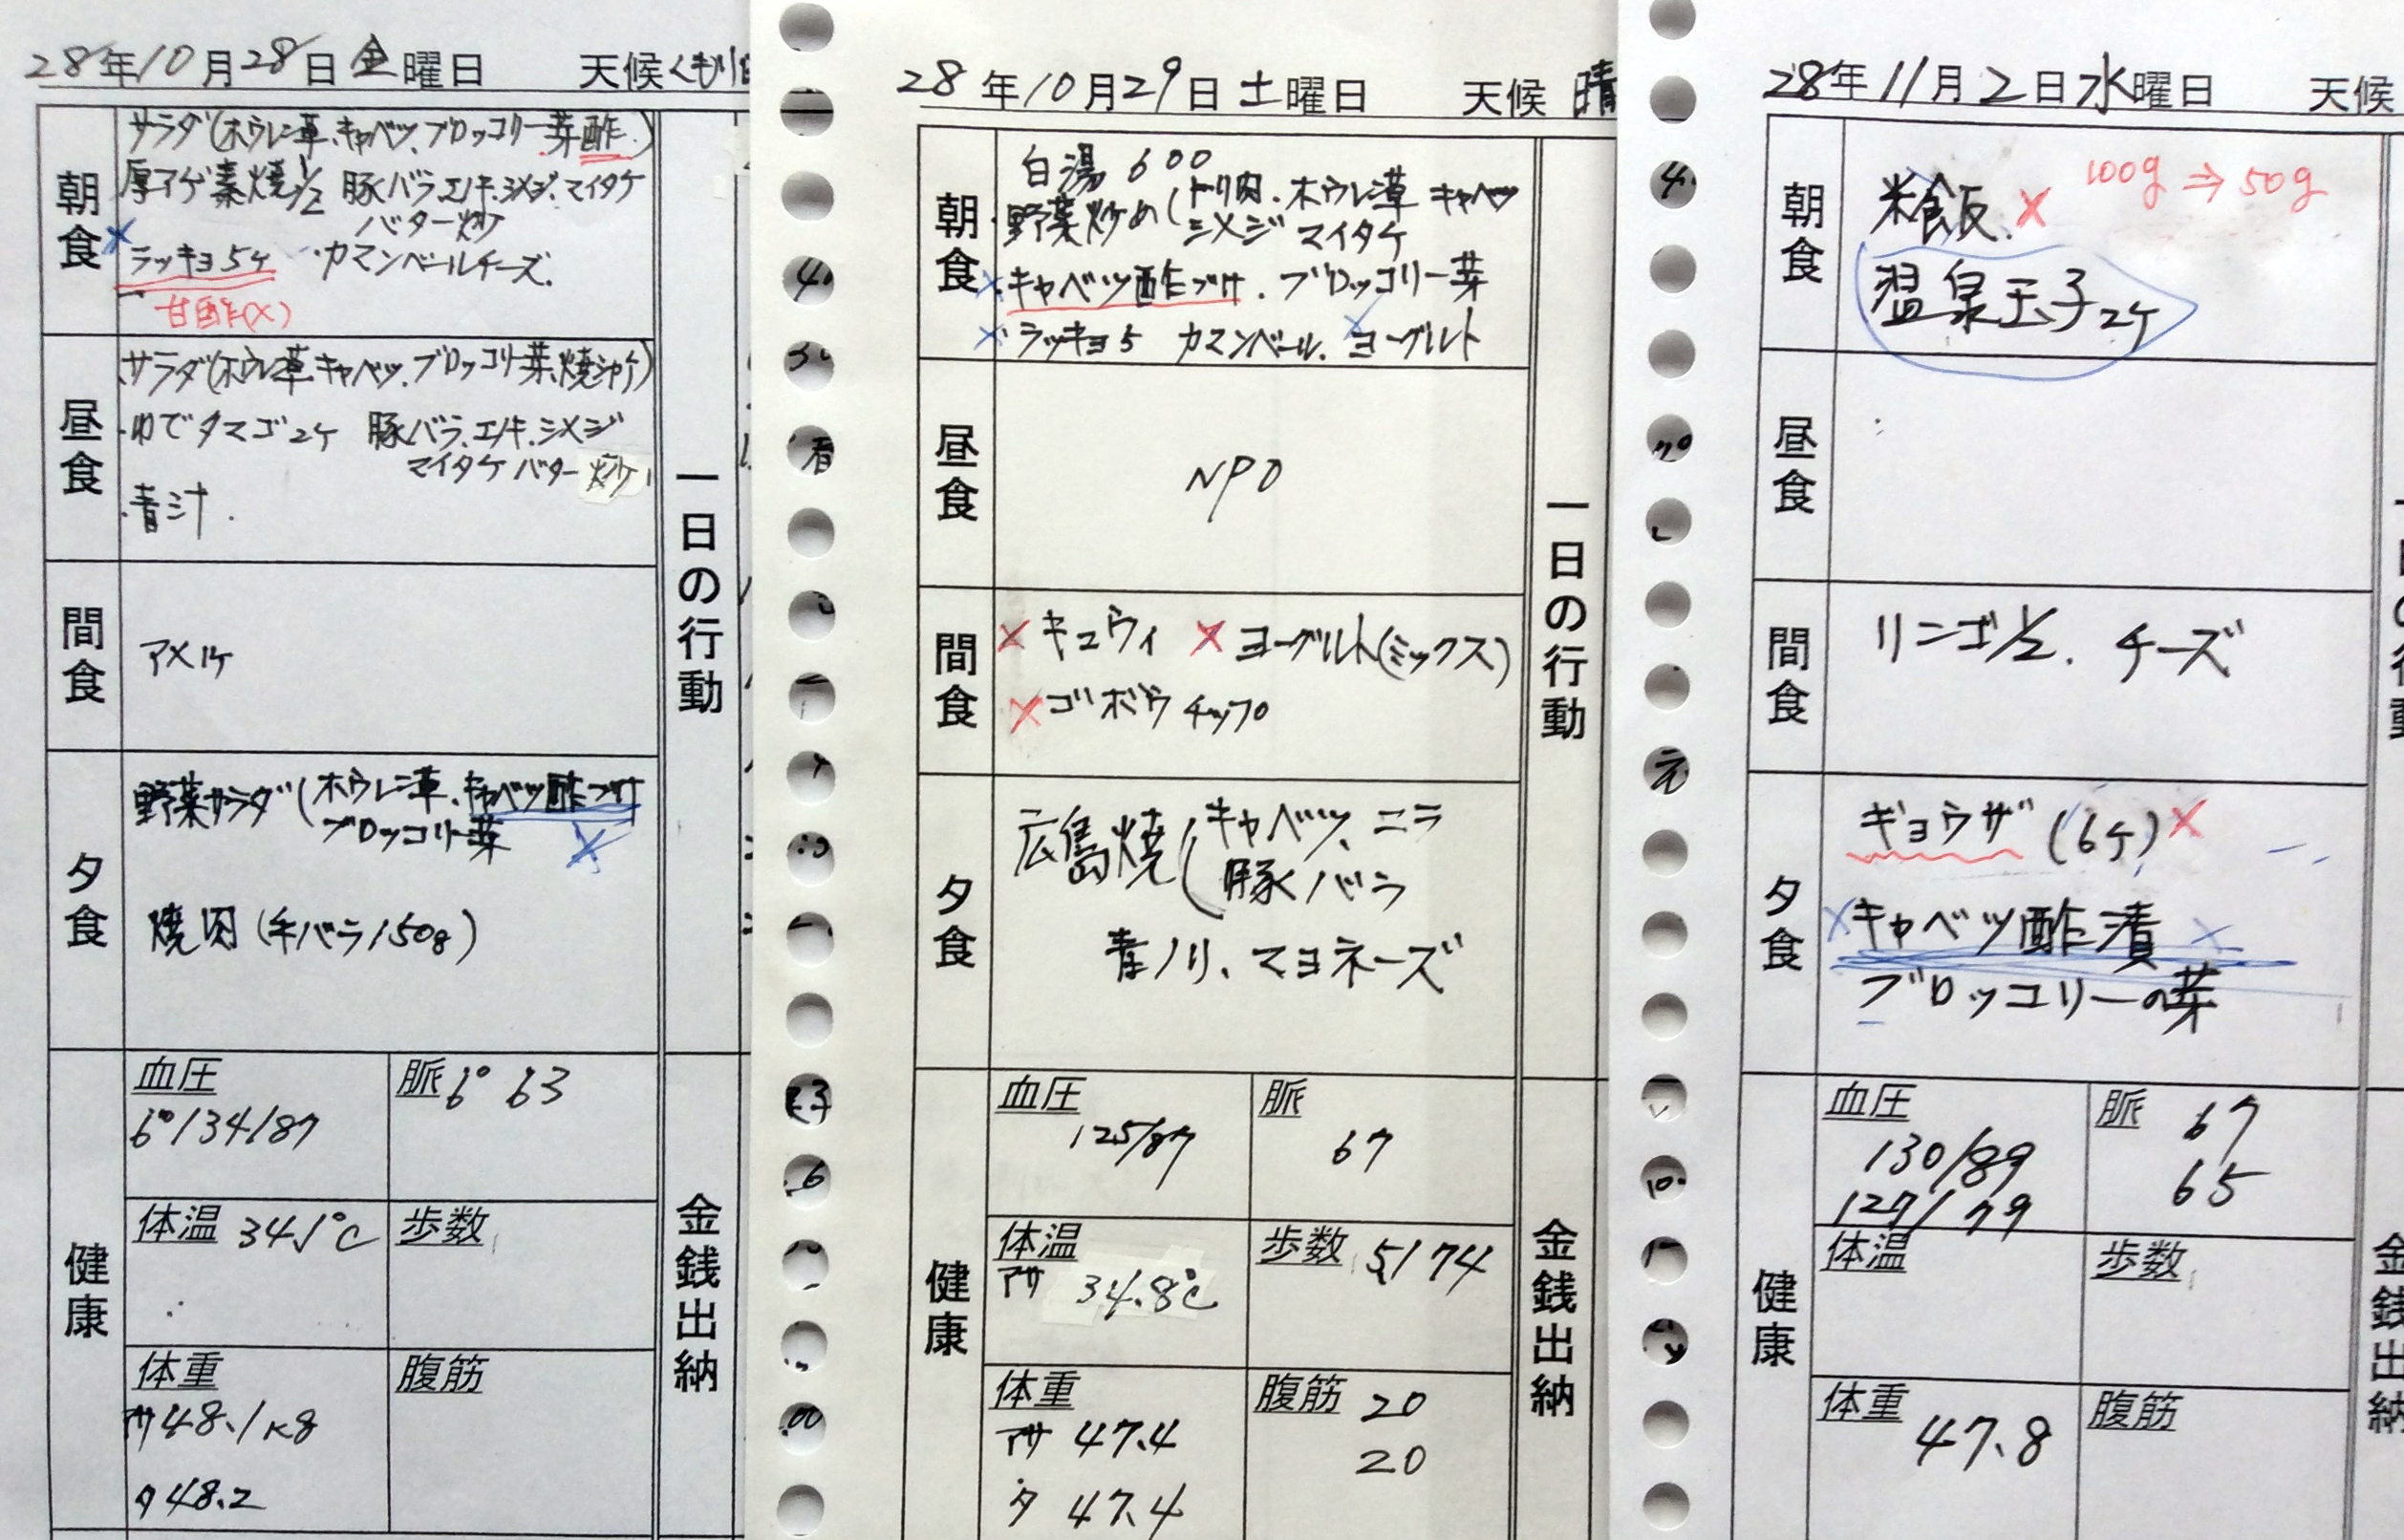 28年10月28日金曜日 天候くもり
朝食
サラダ(ホウレン草、キャベツ、ブロッコリー芽酢)
厚アゲ素焼1/2 豚バラ、エノキ、シメジ、マイタケ
バター炒
ラッキョ5ケ ・カマンベールチーズ.
甘酢(×)
昼食
サラダ(ホウレン草、キャベツ、ブロッコリー芽、焼シャケ)
・ゆでタマゴ2ケ 豚バラ、エノキ、シメジ
マイタケ バター炒ケ
・青汁.
間食
アメ1ケ
夕食
野菜サラダ(ホウレン草、キャベツ酢づけ
ブロッコリー芽
焼肉(牛バラ150g)
健康
血圧
6°134/87
脈 6° 63
体温 34.1℃
歩数
体重
アサ48.1kg
タ48.2
腹筋
一日の行動
金銭出納
28年10月29日土曜日 天候 晴
朝食
白湯 600
・野菜炒め(トリ肉、ホウレン草 キャベツ
シメジ マイタケ
・キャベツ酢づけ.ブロッコリー芽
・ラッキョ5 カマンベール.ヨーグルト
昼食
NPO
間食
×キュウィ ×ヨーグルト(ミックス)
×ゴボウ チップ
夕食
広島焼(キャベツ、ニラ
豚バラ
青ノリ、マヨネーズ
健康
血圧
125/87
脈
67
体温
アサ 34.8℃
歩数 5174
体重
アサ 47.4
タ 47.4
腹筋 20
20
一日の行動
金銭出納
28年11月2日水曜日 天候
朝食
米飯.× 100g⇒50g
温泉玉子2ケ
昼食
間食
リンゴ1/2. チーズ
夕食
ギョウザ(6ケ)×
×キャベツ酢漬×
ブロッコリーの芽
健康
血圧
130/89
127/79
脈 67
65
体温
歩数
体重 47.8
腹筋